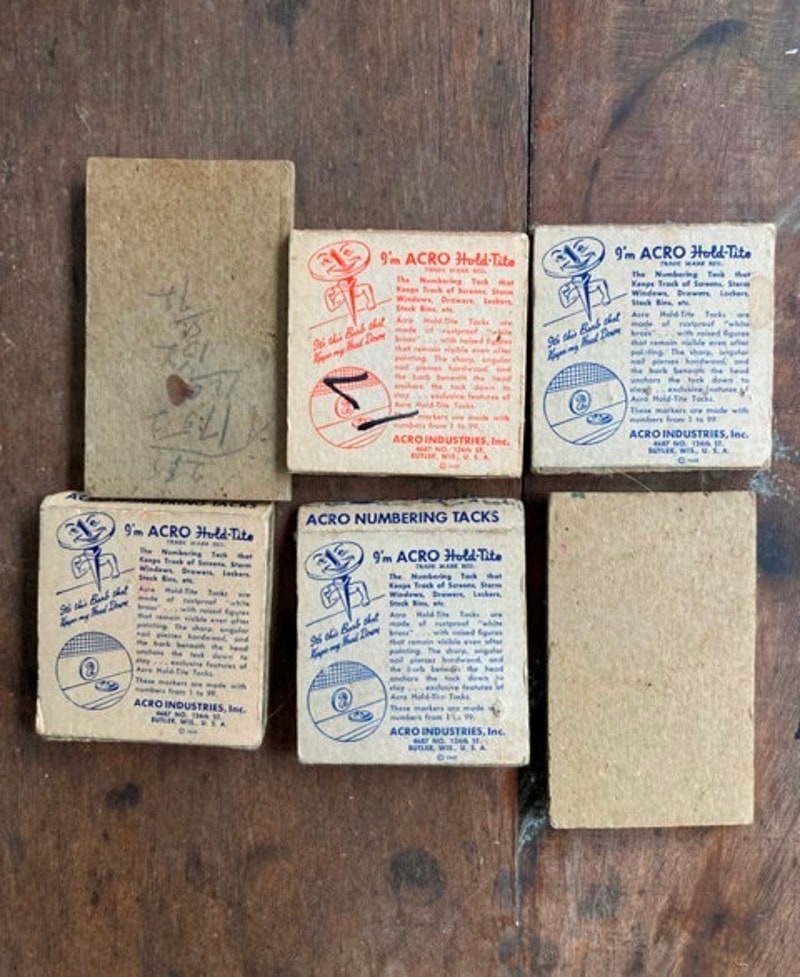 I'm ACRO Hold-Tite
TRADE MARK REG.
The Numbering Tack that
Keeps Track of Screens, Storm
Windows, Drawers, Lockers,
Stock Bins, etc.
It's this Barb that
Keeps my Head Down
Acro Hold-Tite Tacks are
made of rustproof "white
brass" . . . with raised figures
that remain visible even after
painting. The sharp, angular
nail pierces hardwood, and
the barb beneath the head
anchors the tack down to
stay . . . exclusive features of
Acro Hold-Tite Tacks.
markers are made with
numbers from 1 to 99.
ACRO INDUSTRIES, Inc.
4687 NO. 124th ST.
BUTLER, WIS., U. S. A.
I'm ACRO Hold-Tite
TRADE MARK REG.
The Numbering Tack that
Keeps Track of Screens, Storm
Windows, Drawers, Lockers,
Stock Bins, etc.
It's this Barb that
Keeps my Head Down
Acro Hold-Tite Tacks are
made of rustproof "white
brass" . . . with raised figures
that remain visible even after
painting. The sharp, angular
nail pierces hardwood, and
the barb beneath the head
anchors the tack down to
stay . . . exclusive features of
Acro Hold-Tite Tacks.
These markers are made with
numbers from 1 to 99.
2
ACRO INDUSTRIES, Inc.
4687 NO. 124th ST.
BUTLER, WIS., U. S. A.
NUMBERING TACKS
I'm ACRO Hold-Tite
TRADE MARK REG.
The Numbering Tack that
Keeps Track of Screens, Storm
Windows, Drawers, Lockers,
Stock Bins, etc.
It's this Barb that
Keeps my Head Down
Acro Hold-Tite Tacks are
made of rustproof "white
brass" . . . with raised figures
that remain visible even after
painting. The sharp, angular
nail pierces hardwood, and
the barb beneath the head
anchors the tack down to
stay . . . exclusive features of
Acro Hold-Tite Tacks.
These markers are made with
numbers from 1 to 99
2
ACRO INDUSTRIES, Inc.
4687 NO. 124th ST.
BUTLER, WIS., U. S. A.
ACRO NUMBERING TACKS
I'm ACRO Hold-Tite
TRADE MARK REG.
The Numbering Tack that
Keeps Track of Screens, Storm
Windows, Drawers, Lockers,
Stock Bins, etc.
It's this Barb that
Keeps my Head Down
Acro Hold-Tite Tacks are
made of rustproof "white
brass" . . . with raised figures
that remain visible even after
painting. The sharp, angular
nail pierces hardwood, and
the barb beneath the head
anchors the tack down to
stay . . . exclusive features of
Acro Hold-Tite Tacks.
These markers are made
numbers from 1 to 99.
2
ACRO INDUSTRIES, Inc.
4687 NO. 124th ST.
BUTLER, WIS., U. S. A.